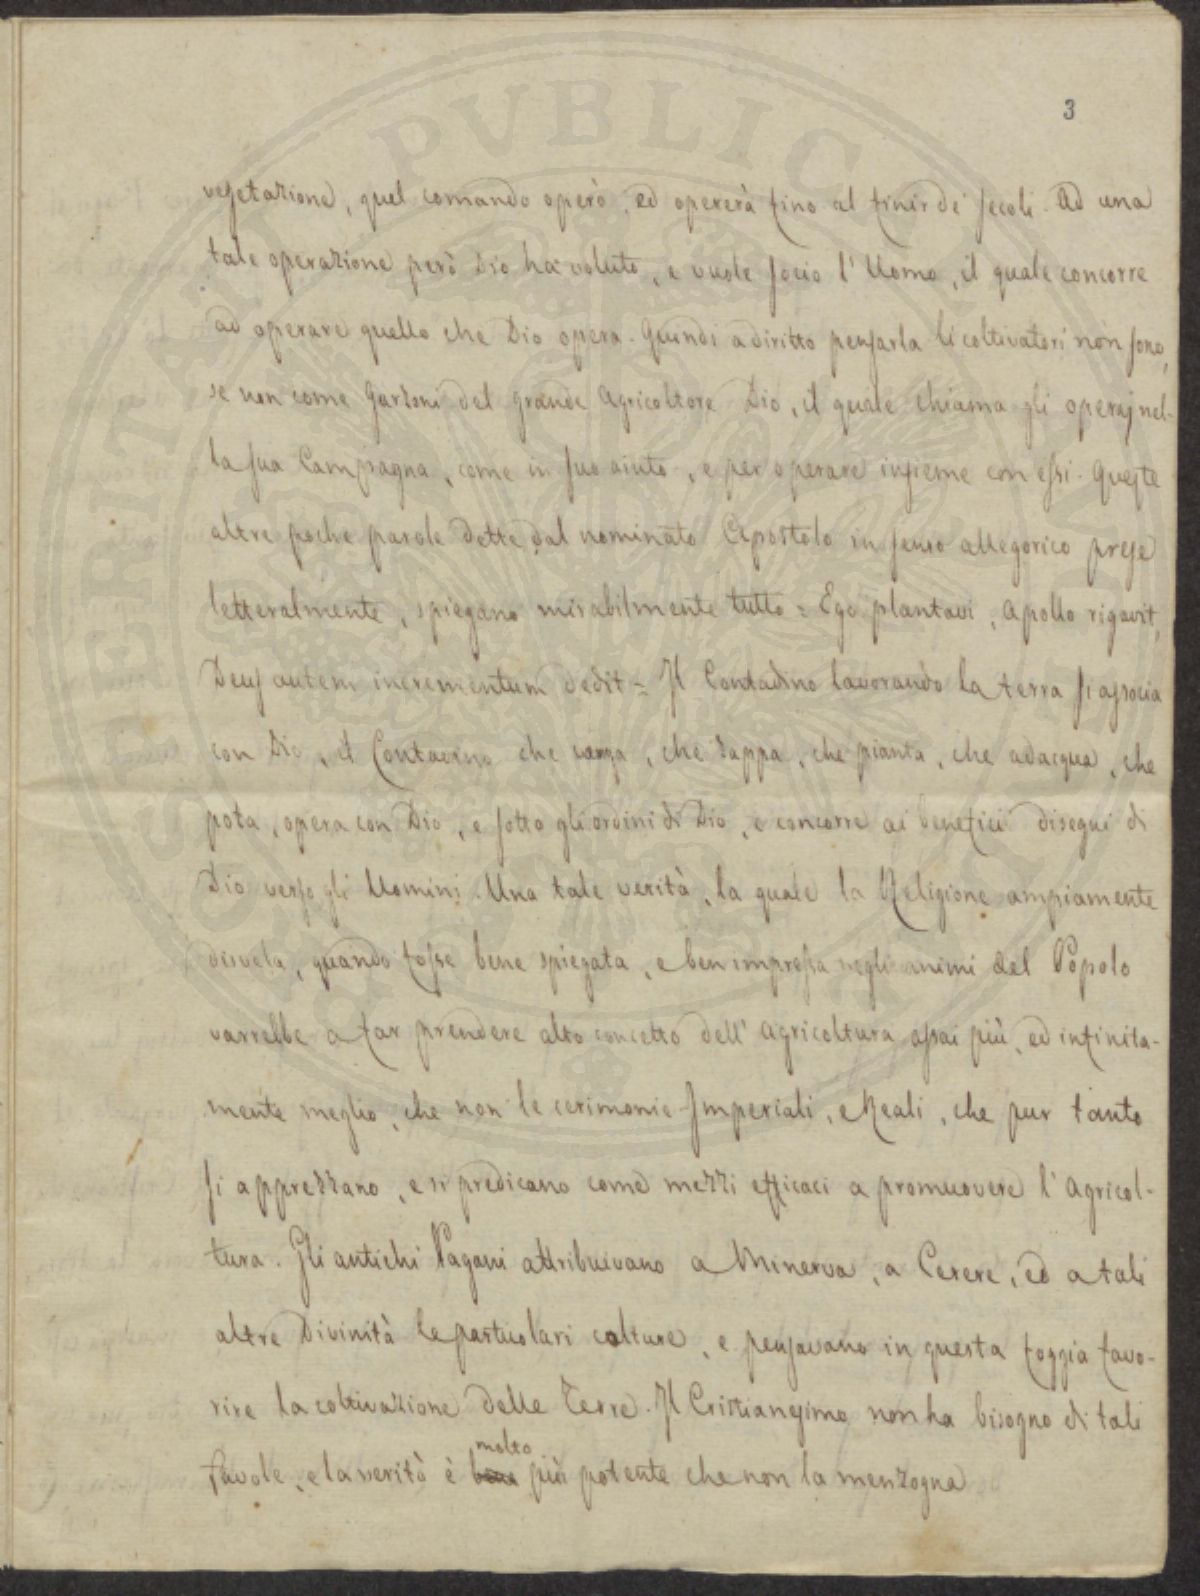 3
vegetazione, quel comando operò, ed opererà fino al finir de' secoli. Ad una
tale operazione però Dio ha voluto, e vuole socio l'Uomo, il quale concorre
ad operare quello che Dio opera. Quindi a diritto pensarla li coltivatori non sono,
se non come Garzoni del grande Agricoltore Dio, il quale chiama gli operaj nel-
la sua Campagna, come in suo aiuto, e per operare insieme con essi. Queste
altre poche parole dette dal nominato Apostolo in senso allegorico prese
letteralmente, spiegano mirabilmente tutto = Ego plantavi, Apollo rigavit,
Deus autem incrementum dedit = Il Contadino lavorando la terra si associa
con Dio, il Contadino che vanga, che zappa, che pianta, che adacqua, che
pota, opera con Dio, e sotto gli ordini di Dio, e concorre ai benefici disegni di
Dio verso gli Uomini. Una tale verità, la quale la Religione ampiamente
disvela, quando fosse bene spiegata, e ben impressa negli animi del Popolo
varrebbe a far prendere alto concetto dell'Agricoltura assai più, ed infinita-
mente meglio, che non le cerimonie Imperiali, e Reali, che pur tanto
si apprezzano, e si predicano come mezzi efficaci a promuovere l'Agricol-
tura. Gli antichi Pagani attribuivano a Minerva, a Cerere, ed a tali
altre Divinità le particolari colture, e pensavano in questa foggia favo-
rire la coltivazione delle Terre. Il Cristianesimo non ha bisogno di tali
molto
favole, e la verità è bene più potente che non la menzogna
SERITATI PVBLICAE